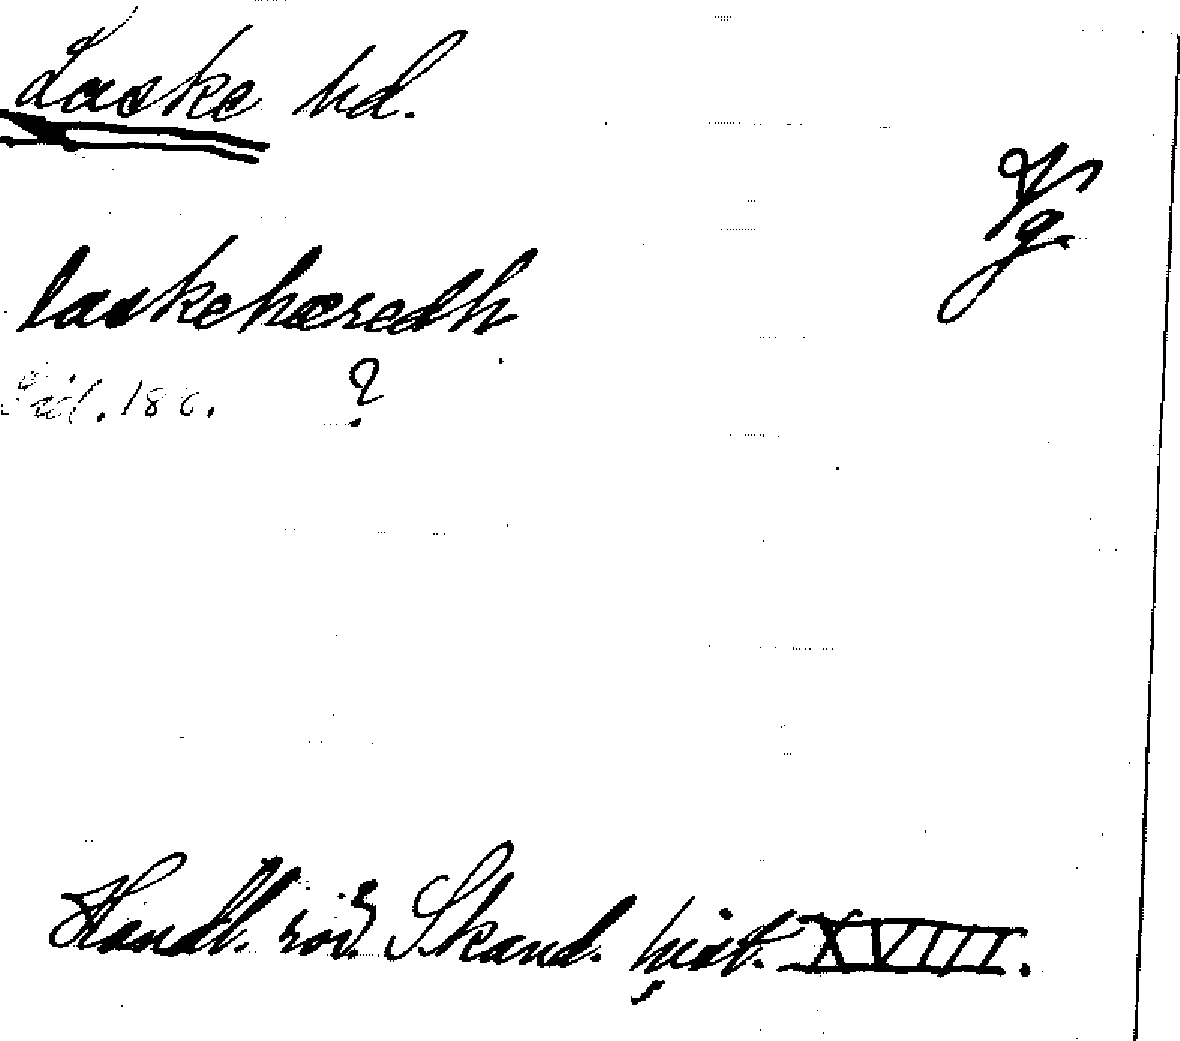 Laske hd.
Vg
laskehæredh
Sid. 186. ?
Handl. rör. Skand. hist. XVIII.